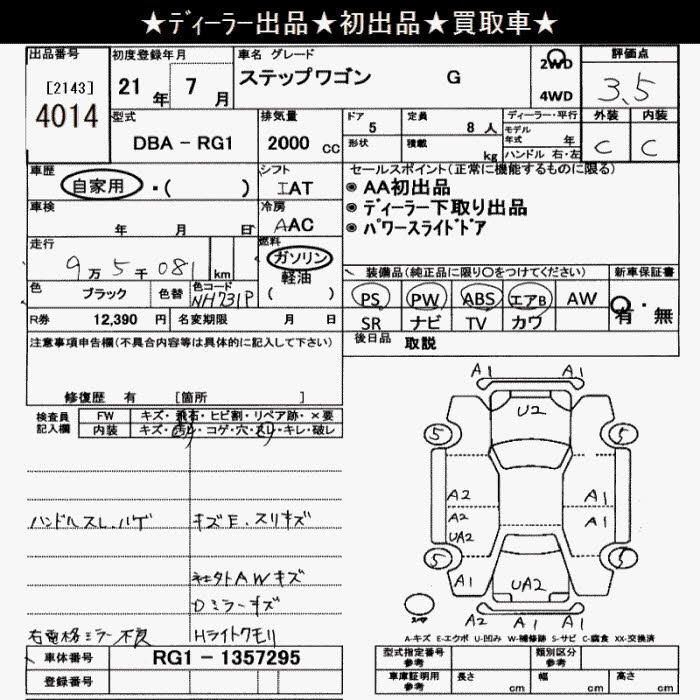 ★ディーラー出品★初出品★買取車★
出品番号
[2143]
4014
初度登録年月
21年 7月
車名 グレード
ステップワゴン G
2WD
4WD
評価点
3.5
外装 内装
C C
型式
DBA－RG1
排気量
2000 cc
ドア
5
定員
8 人
形状
積載
kg
ディーラー・平行
モデル年式 年
ハンドル 右・左
車歴
自家用・( )
シフト
IAT
セールスポイント(正常に機能するものに限る)
◉ AA初出品
◉ ディーラー下取り出品
◉ パワースライドドア
車検
年 月 日
冷房
AAC
走行
9万5千081 km
燃料
ガソリン
軽油
( )
色 ブラック
色替
色コード
NH731P
装備品(純正品に限り〇をつけてください)
新車保証書
PS PW ABS エアB AW
有・無
SR ナビ TV カワ
R券 12,390 円
名変期限 月 日
後日品 取説
注意事項申告欄(不具合内容等は具体的に記入して下さい)
修復歴 有 [箇所 ]
検査員記入欄
FW キズ・飛石・ヒビ割・リペア跡・×要
内装 キズ・汚レ・コゲ・穴・スレ・キレ・破レ
ハンドルスレ.ハゲ
キズE.スリキズ
社外AWキズ
Dミラーキズ
右電格ミラー不良
Hライトクモリ
A1 A1
U2
5 5
A2 A1
A2 A1
UA2
5 5
A1
UA2
スペア
A2 A1 A1
A-キズ E-エクボ U-凹み W-補修跡 S-サビ C-腐食 XX-交換済
車体番号 RG1－1357295
登録番号
型式指定番号 参考
類別区分 参考
車庫証明用 参考
長さ cm
幅 cm
高さ cm